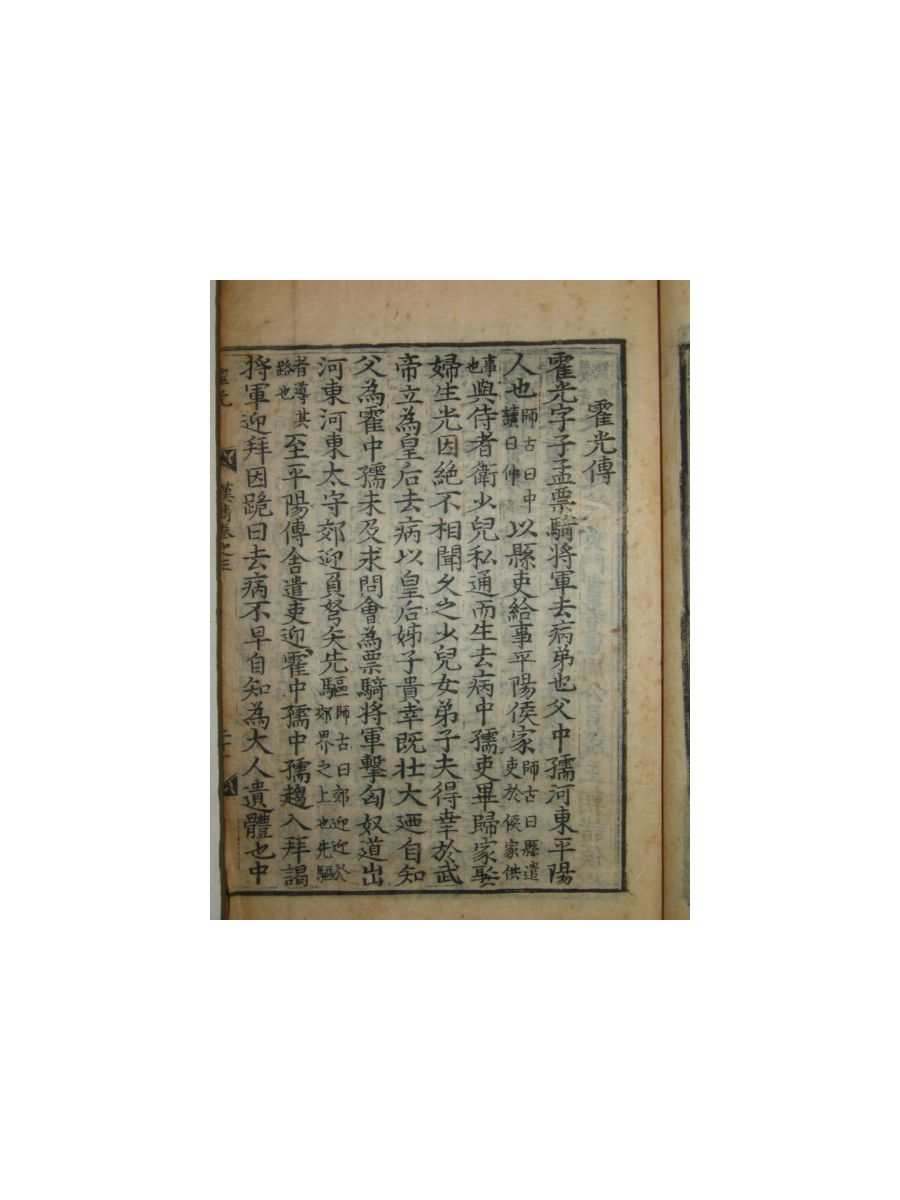 霍光傳
霍光字子孟票騎將軍去病弟也父中孺河東平陽
人也師古曰中讀曰仲以縣吏給事平陽侯家師古曰縣遣吏於侯家供
事也與侍者衛少兒私通而生去病中孺吏畢歸家娶
婦生光因絶不相聞久之少兒女弟子夫得幸於武
帝立為皇后去病以皇后姊子貴幸既壯大迺自知
父為霍中孺未及求問會為票騎將軍擊匈奴道出
河東河東太守郊迎負弩矢先驅師古曰郊迎迎於郊界之上也先驅
者導其路也至平陽傳舍遣吏迎霍中孺中孺趨入拜謁
將軍迎拜因跪曰去病不早自知為大人遺體也中
霍光
漢雋卷之三